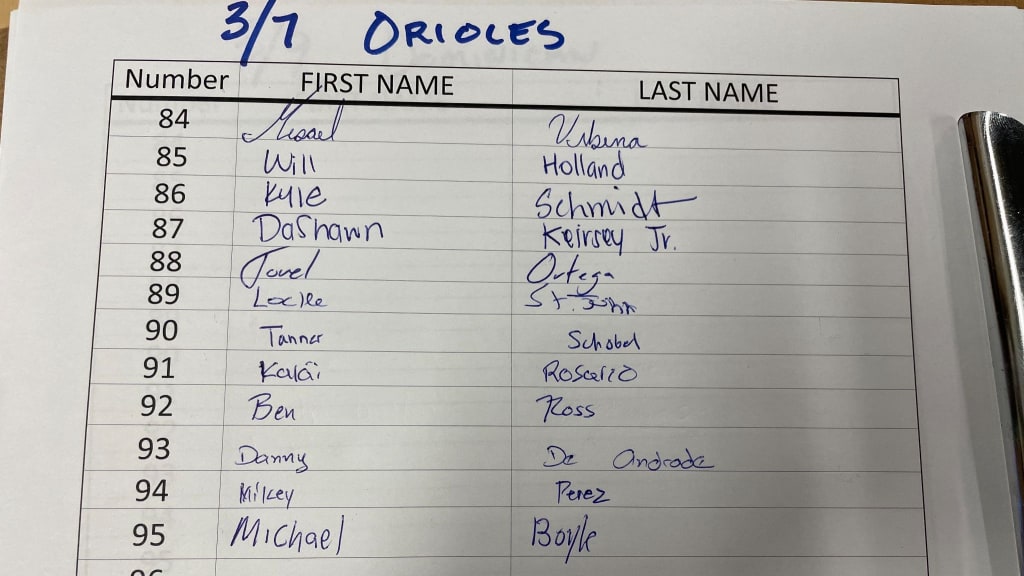 3/7 ORIOLES
Number FIRST NAME LAST NAME
84 Misael Urbina
85 Will Holland
86 Kyle Schmidt
87 DaShawn Keirsey Jr.
88 Jovel Ortega
89 Locke St. John
90 Tanner Schobel
91 Kala'i Rosario
92 Ben Ross
93 Danny De Andrade
94 Mikey Perez
95 Michael Boyle